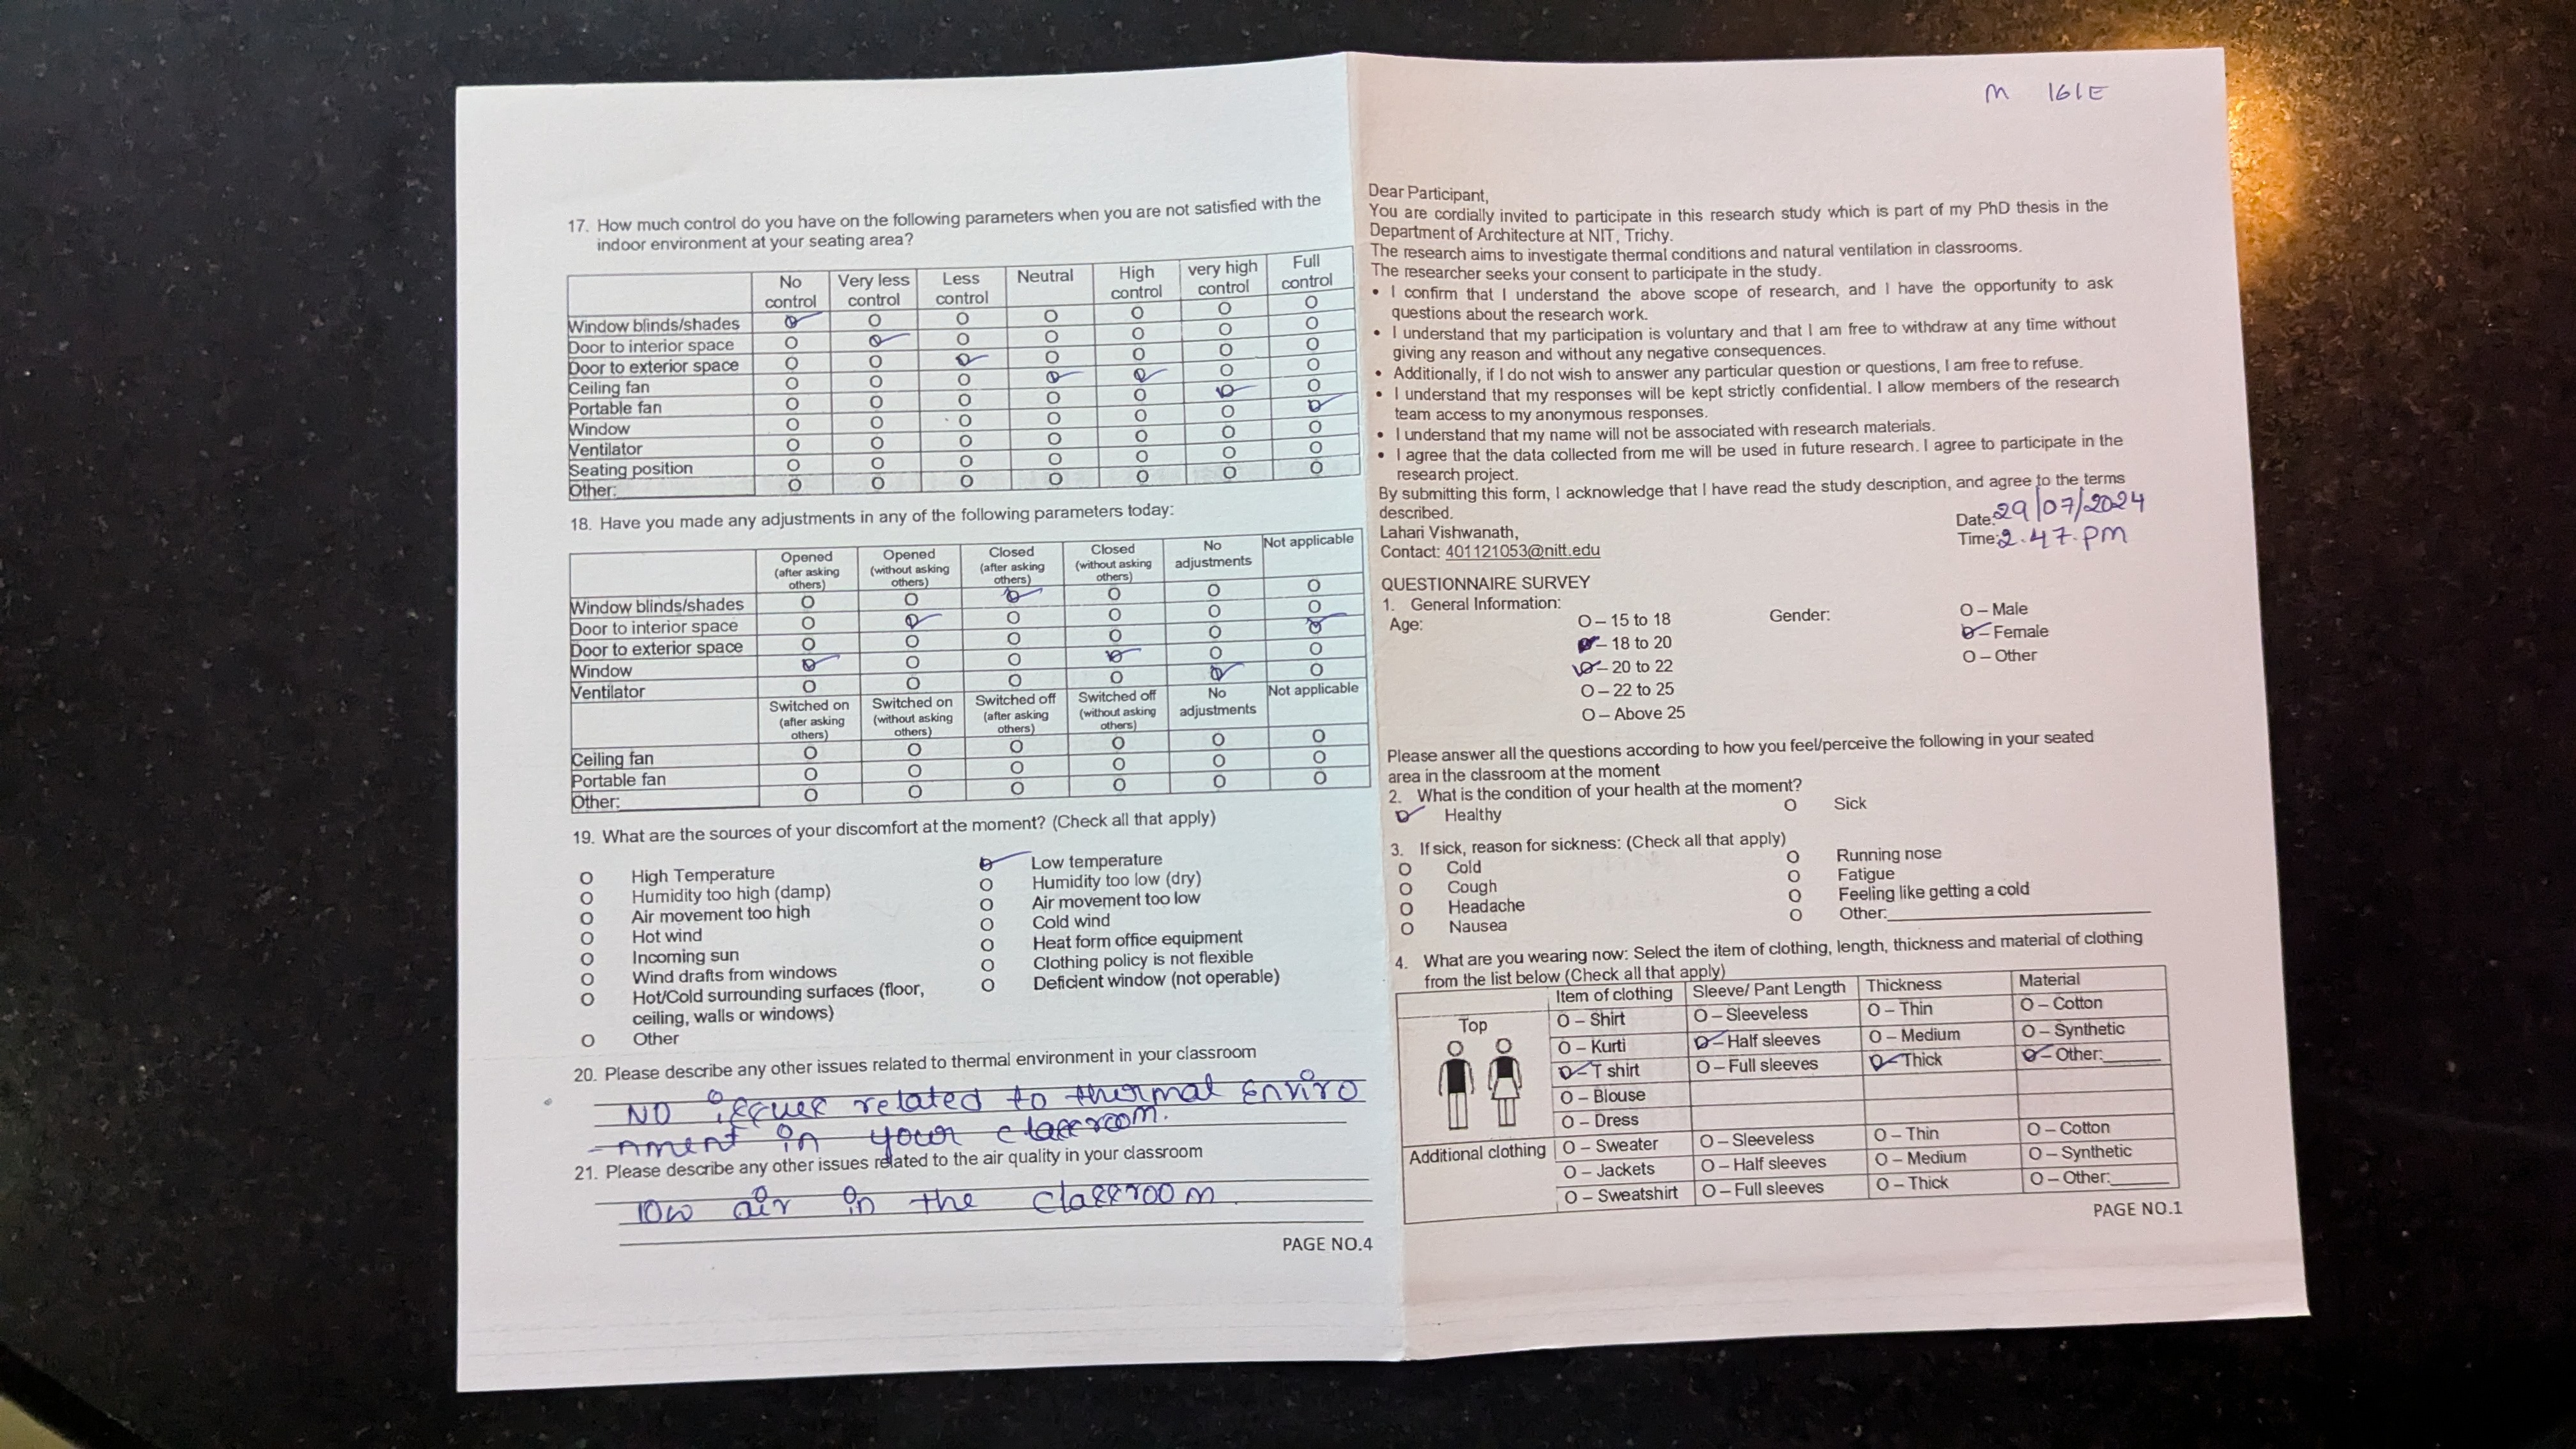 17. How much control do you have on the following parameters when you are not satisfied with the
indoor environment at your seating area?
No control Very less control Less control Neutral High control very high control Full control
Window blinds/shades O O O O O O O
Door to interior space O O O O O O O
Door to exterior space O O O O O O O
Ceiling fan O O O O O O O
Portable fan O O O O O O O
Window O O O O O O O
Ventilator O O O O O O O
Seating position O O O O O O O
Other: O O O O O O O
18. Have you made any adjustments in any of the following parameters today:
Opened (after asking others) Opened (without asking others) Closed (after asking others) Closed (without asking others) No adjustments Not applicable
Window blinds/shades O O O O O O
Door to interior space O O O O O O
Door to exterior space O O O O O O
Window O O O O O O
Ventilator O O O O O O
Switched on (after asking others) Switched on (without asking others) Switched off (after asking others) Switched off (without asking others) No adjustments Not applicable
Ceiling fan O O O O O O
Portable fan O O O O O O
Other: O O O O O O
19. What are the sources of your discomfort at the moment? (Check all that apply)
O High Temperature O Low temperature
O Humidity too high (damp) O Humidity too low (dry)
O Air movement too high O Air movement too low
O Hot wind O Cold wind
O Incoming sun O Heat form office equipment
O Wind drafts from windows O Clothing policy is not flexible
O Hot/Cold surrounding surfaces (floor, O Deficient window (not operable)
ceiling, walls or windows)
O Other
20. Please describe any other issues related to thermal environment in your classroom
NO issues related to thermal enviro
nment in your classroom.
21. Please describe any other issues related to the air quality in your classroom
low air in the classroom.
PAGE NO.4
M 161E
Dear Participant,
You are cordially invited to participate in this research study which is part of my PhD thesis in the
Department of Architecture at NIT, Trichy.
The research aims to investigate thermal conditions and natural ventilation in classrooms.
The researcher seeks your consent to participate in the study.
• I confirm that I understand the above scope of research, and I have the opportunity to ask
questions about the research work.
• I understand that my participation is voluntary and that I am free to withdraw at any time without
giving any reason and without any negative consequences.
• Additionally, if I do not wish to answer any particular question or questions, I am free to refuse.
• I understand that my responses will be kept strictly confidential. I allow members of the research
team access to my anonymous responses.
• I understand that my name will not be associated with research materials.
• I agree that the data collected from me will be used in future research. I agree to participate in the
research project.
By submitting this form, I acknowledge that I have read the study description, and agree to the terms
described.
Lahari Vishwanath, Date: 29/07/2024
Contact: 401121053@nitt.edu Time: 2.47.pm
QUESTIONNAIRE SURVEY
1. General Information:
Age: O – 15 to 18 Gender: O – Male
O – 18 to 20 O – Female
O – 20 to 22 O – Other
O – 22 to 25
O – Above 25
Please answer all the questions according to how you feel/perceive the following in your seated
area in the classroom at the moment
2. What is the condition of your health at the moment?
O Healthy O Sick
3. If sick, reason for sickness: (Check all that apply)
O Cold O Running nose
O Cough O Fatigue
O Headache O Feeling like getting a cold
O Nausea O Other:
4. What are you wearing now: Select the item of clothing, length, thickness and material of clothing
from the list below (Check all that apply)
Item of clothing Sleeve/ Pant Length Thickness Material
Top O – Shirt O – Sleeveless O – Thin O – Cotton
O – Kurti O – Half sleeves O – Medium O – Synthetic
O – T shirt O – Full sleeves O – Thick O – Other:
O – Blouse
O – Dress
Additional clothing O – Sweater O – Sleeveless O – Thin O – Cotton
O – Jackets O – Half sleeves O – Medium O – Synthetic
O – Sweatshirt O – Full sleeves O – Thick O – Other:
PAGE NO.1